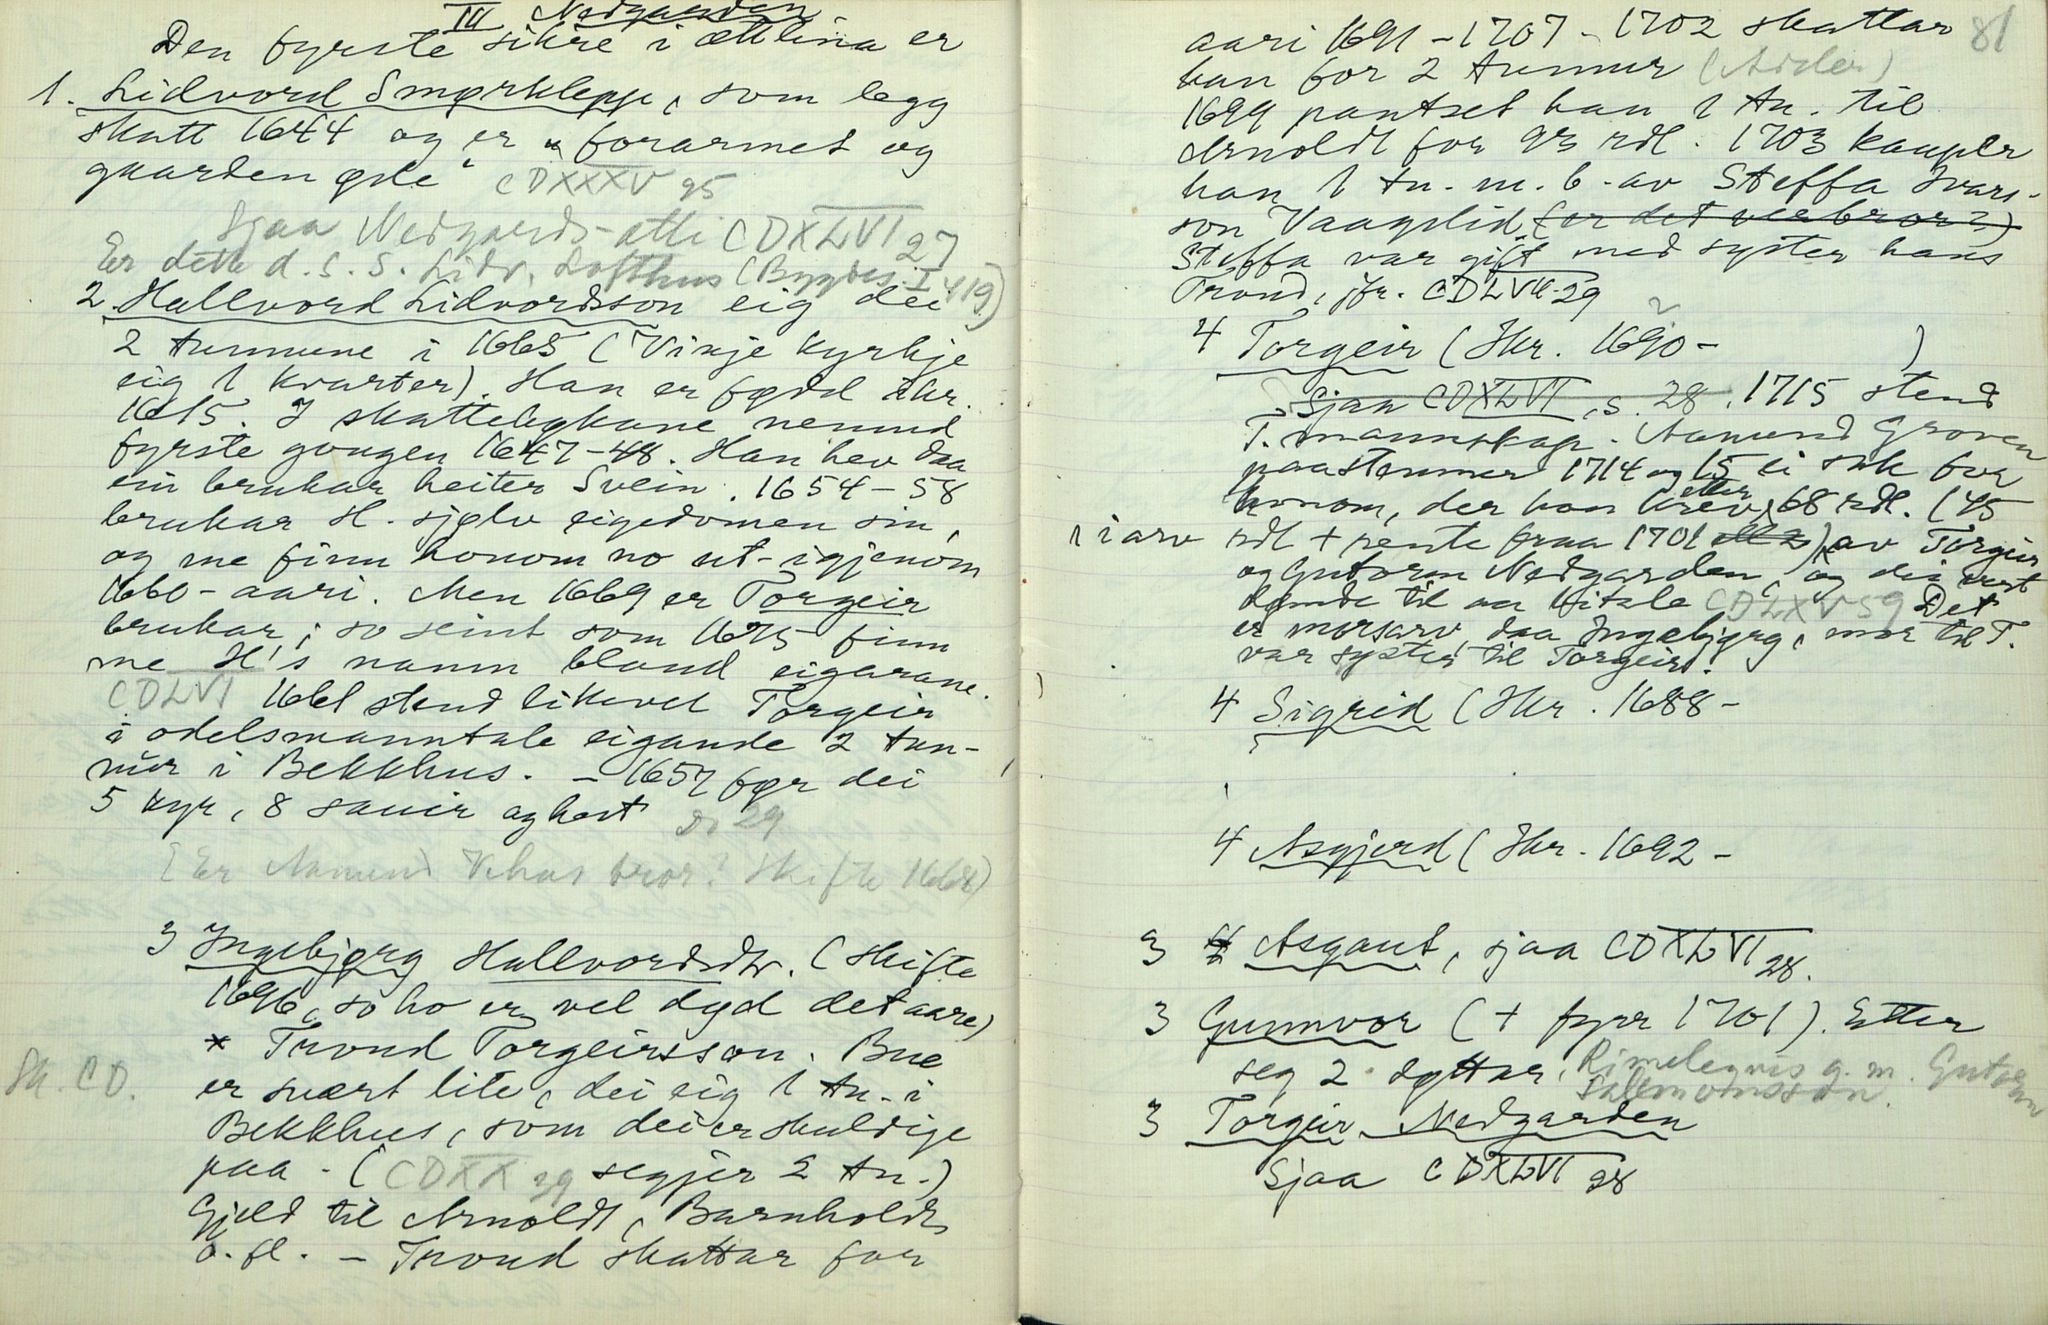 III Nedgarden
Den fyrste sikre i ættlina er
1. Lidvord Smørklepp, som legg
skatt 1644 og er "forarmet og
gaarden øde" CDXXXV 95
Sjaa Nedgards-ætti CDXLVI 27
Er dette d. s. s. Lidv. Lofthus (Bygdes. I 419)
2 Hallvord Lidvordsson eig dei
2 tunnune i 1665 (Vinje kyrkje
eig 1 kvarter). Han er fødd ikr.
1615. I skattelykane nemnd
fyrste gongen 1647-48. Han hev daa
ein brukar heiter Svein. 1654-58
brukar H. sjølv eigedomen sin,
og me finn honom no ut-igjenom
1660-aari. Men 1669 er Torgeir
brukar; so seint som 1675 finn
me H's namn bland eigarane.
CDLVI 1661 stend likevel Torgeir
i odelsmanntale eigande 2 tun-
nur i Bekkhus. - 1657 før dei
5 kyr, 8 sauir og hest s. 29
(Er Aamund Vehus bror? Skifte 1668)
3 Ingebjørg Hallvordsdtr. (Skifte
1696, so ho er vel død det aaret)
* Trond Torgeirsson. Bue
er svært lite, dei eig 1 tn. i
Sk. CD.
Bekkhus, som dei er skuldige
paa - (CDXX 39 segjer 2 tn.)
Gjeld til Arnoldt, Barnholdt
o. fl. - Trond skattar for
81
aari 1691-1707 - 1702 skattar
han for 2 tunnur
1699 pantset han 1 tn. til
Arnoldt for 93 rdl. 1703 kauper
han 1 tn. m. b. av Steffa Ivars-
son Vaagslid (er det verbror?)
Steffa var gift med syster hans
Trond, jfr. CDLVII 29
4 Torgeir (Ikr. 1690 - )
Sjaa CDXLVI, s. 28. 1715 stend
T. mannskap. Aamund Groven
paastemner 1714 og 15 ei sak for
honom, der han krev etter 68 rdl. (45
i arv rdl + rente fraa 1701) av Torgeir
og Gutorm Nedgarden, og dei vert
dømde til aa bitale CDLXV 59 Det
er morsarv, daa Ingebjørg, mor til T.
var syster til Torgeir.
4 Sigrid (Ikr. 1688 -
4 Asgjerd (Ikr. 1692 -
3 Asgaut, sjaa CDXLVI 28.
3 Gunnvor (+ fyrr 1701). Etter
seg 2 døttar. Rimelegvis g. m. Gutorm
Salomonsson
3 Torgeir Nedgarden
Sjaa CDXLVI 28